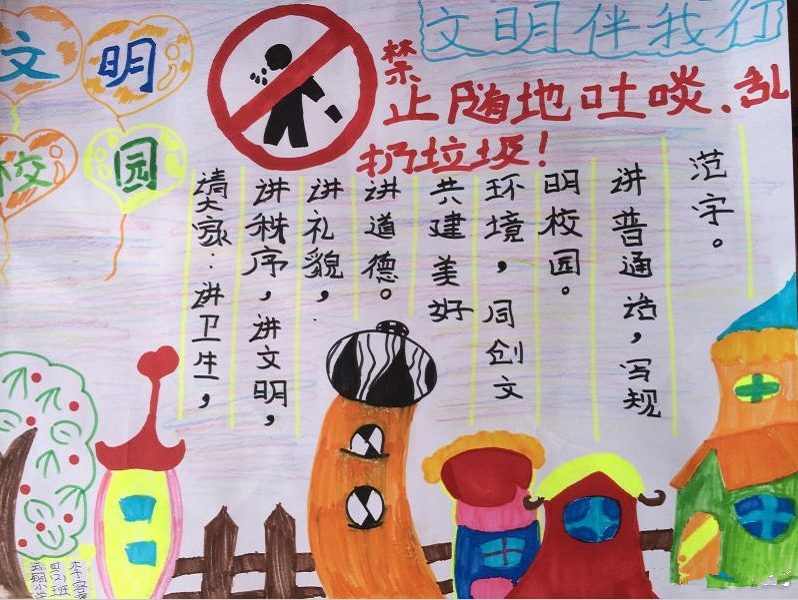 文明
校园
文明伴我行
禁
止随地吐啖、乱
扔垃圾！
请大家：讲卫生，
讲秩序，讲文明，
讲礼貌，
讲道德。
共建美好
环境，同创文
明校园。
讲普通话，写规
范字。